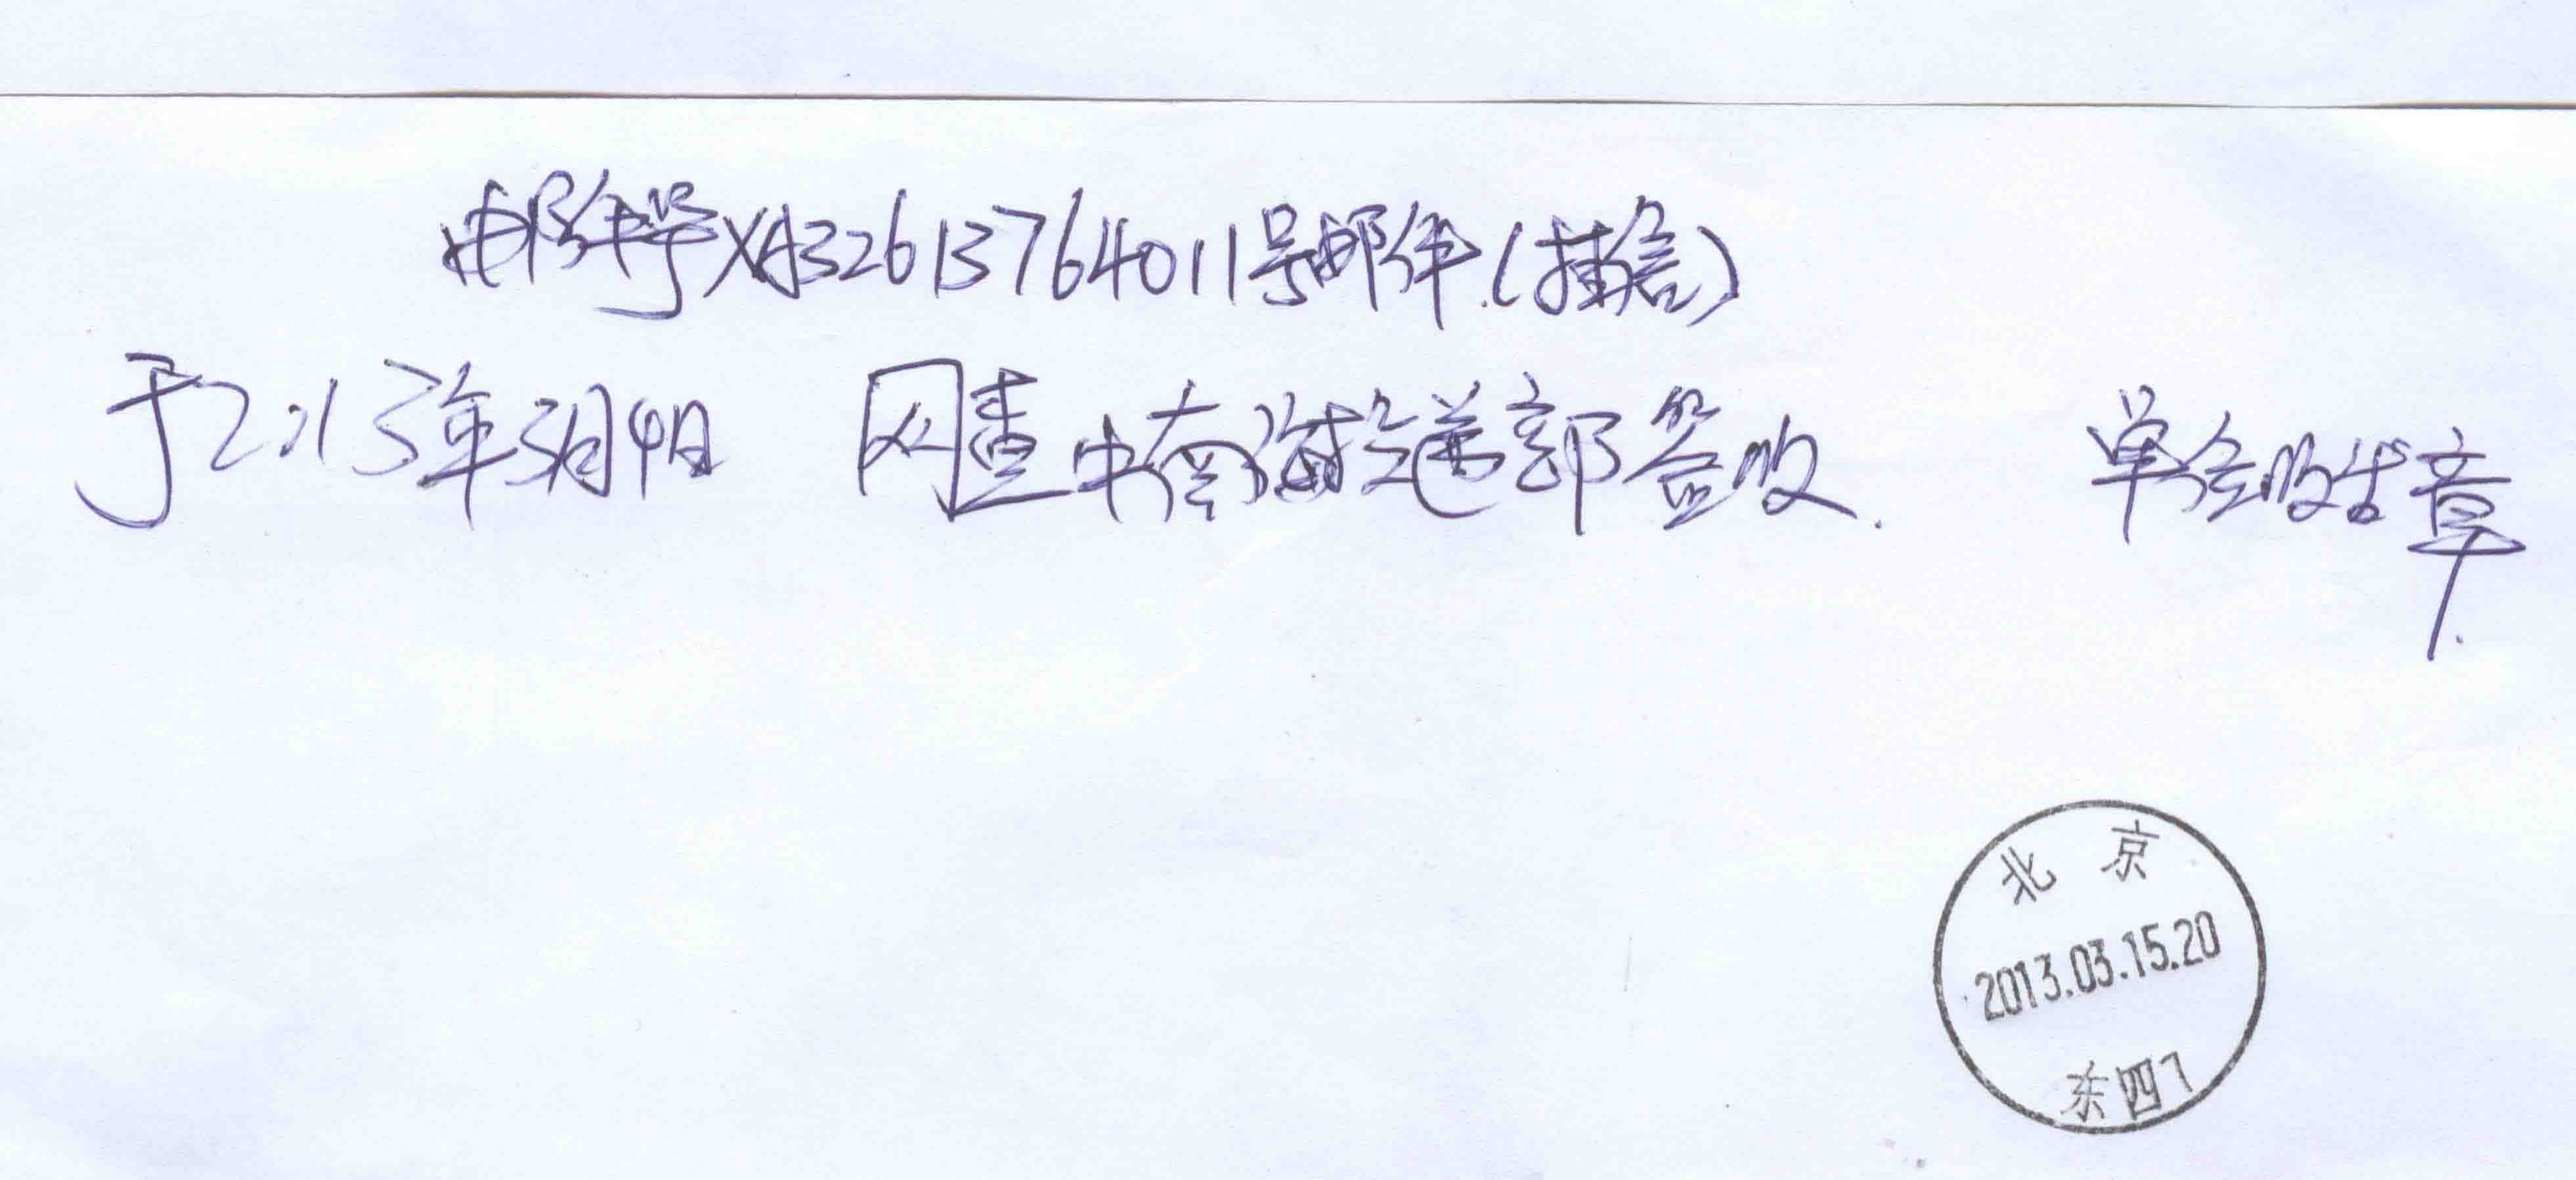 邮件号XA32613764011号邮件.(挂信)
于2013年3月4日 网查中南海投递部签收. 单位收发章.
北京
2013.03.15.20
东四1